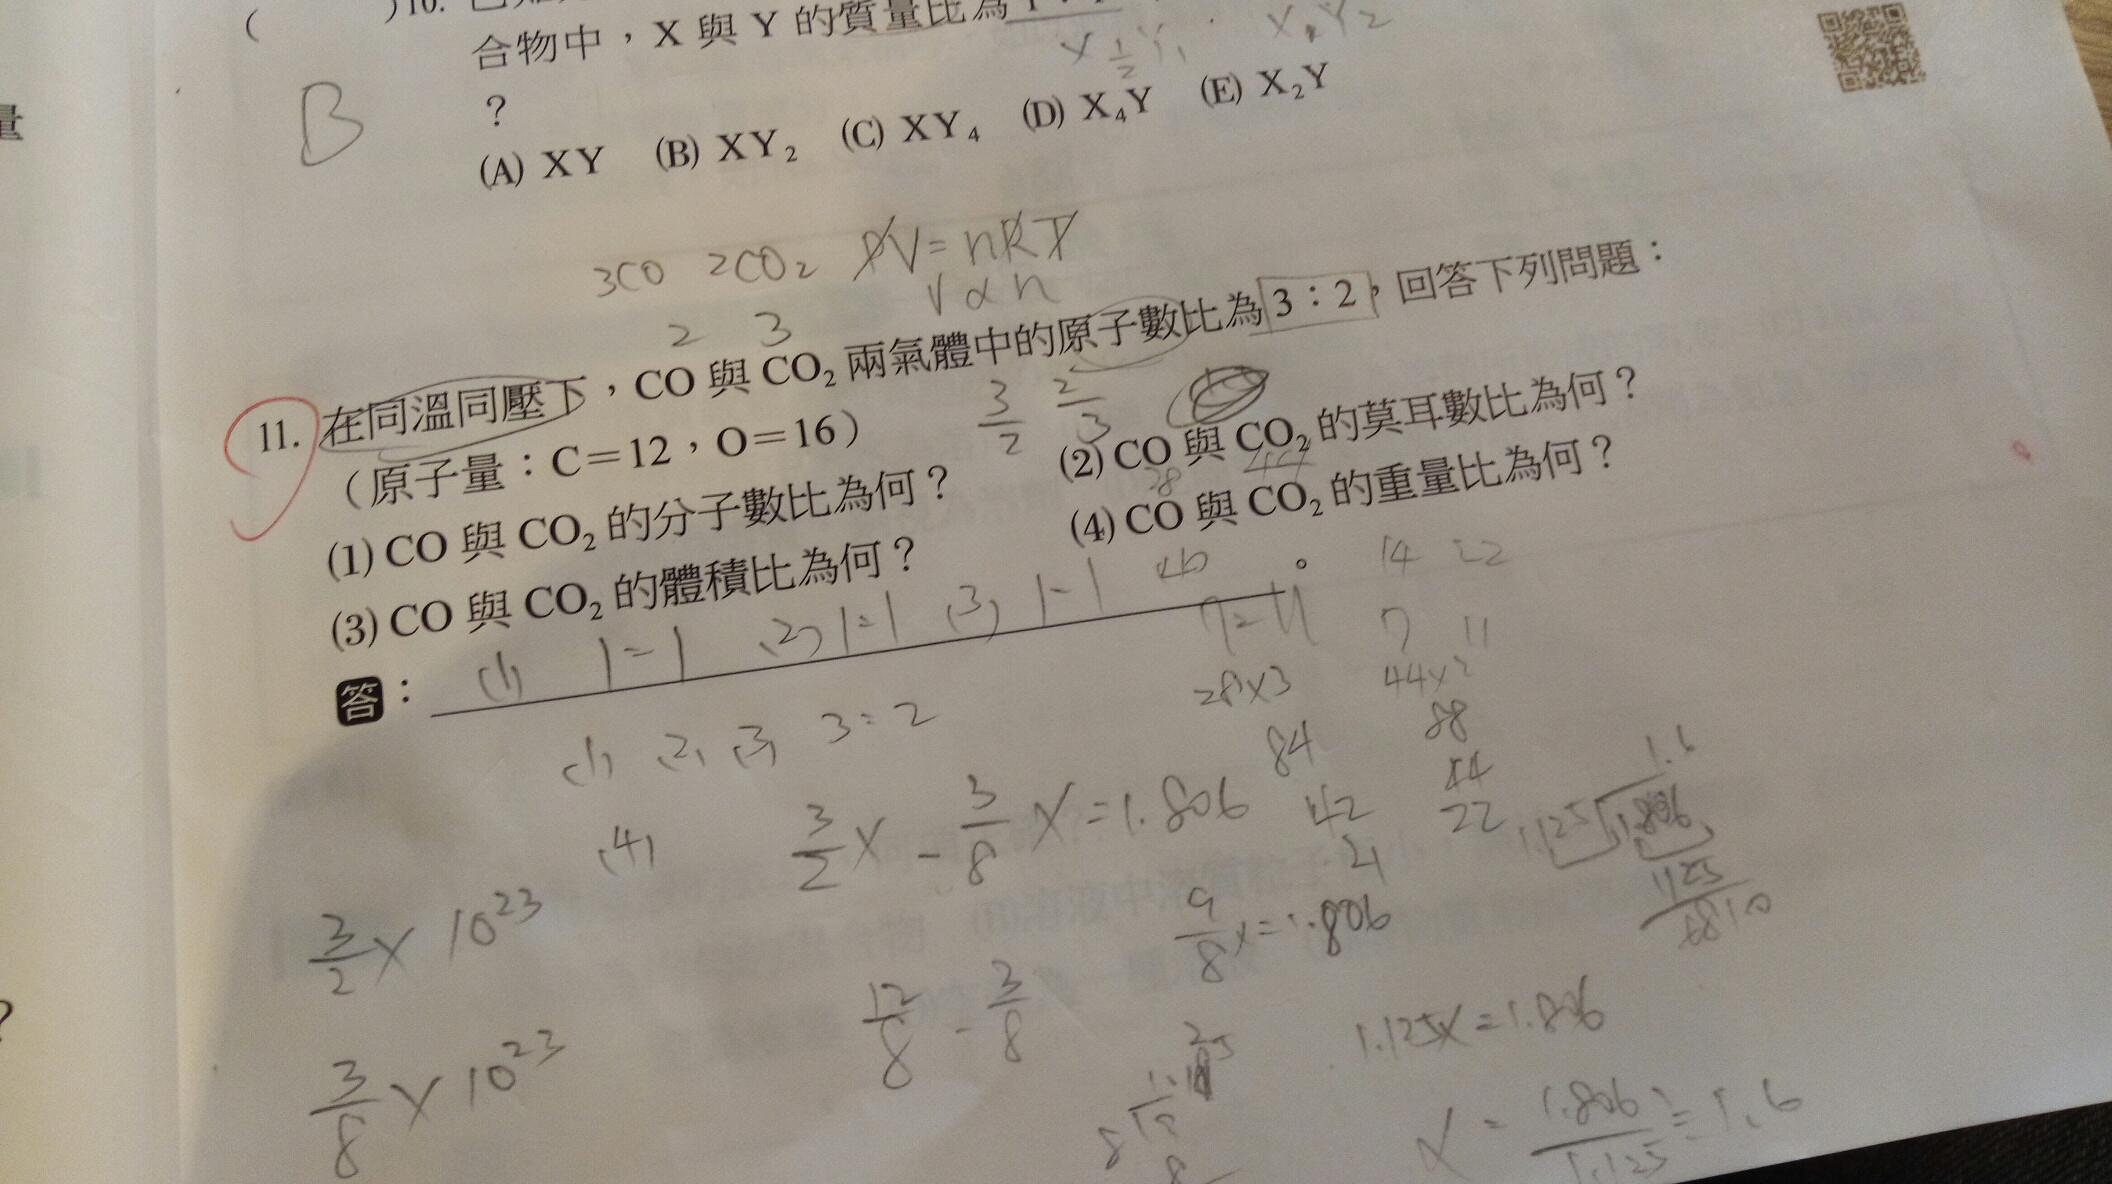 ( )10.
合物中，X 與 Y 的質量比為
X½Y₁ X₁Y₂
?
B
(A) XY (B) XY₂ (C) XY₄ (D) X₄Y (E) X₂Y
3CO 2CO₂ PV=nRT
V∝n
2 3
11. 在同溫同壓下，CO 與 CO₂ 兩氣體中的原子數比為 3：2，回答下列問題：
(原子量：C=12，O=16)
3/2 2/3
(1) CO 與 CO₂ 的分子數比為何？ (2) CO 與 CO₂ 的莫耳數比為何？
28 44
(3) CO 與 CO₂ 的體積比為何？ (4) CO 與 CO₂ 的重量比為何？
答：(1) 1=1 (2) 1=1 (3) 1-1 (4) 7=11 。
14 22
7 11
28×3 44×2
84 88
44
42 22
21
(1) (2) (3) 3:2
(4) 3/2 X - 3/8 X = 1.806
1.6
1.125 1.806
1125
6810
3/2 X 10²³
9/8 x=1.806
12/8 - 3/8
1.125X=1.806
3/8 X 10²³
X = 1.806/1.125 = 1.6